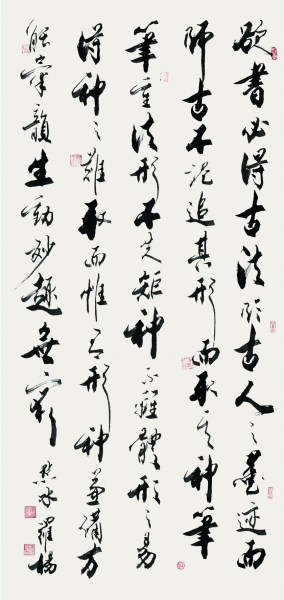 欲書必得古法於古人之墨迹而
師古不追其形而取其神筆
筆重法形不失矩神不離體形之易
得神之難取而惟形神兼備方
能氣韻生動妙趣無窮